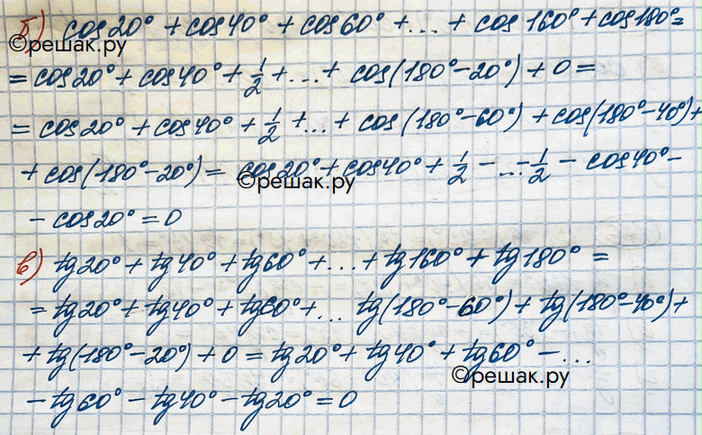 б) cos20° + cos40° + cos60° + ... + cos160° + cos180° =
©решак.ру
= cos20° + cos40° + 1/2 + ... + cos(180° - 20°) + 0 =
= cos20° + cos40° + 1/2 + ... + cos(180° - 60°) + cos(180° - 40°) +
+ cos(180° - 20°) = cos20° + cos40° + 1/2 - ... - 1/2 - cos40° -
©решак.ру
- cos20° = 0
в) tg20° + tg40° + tg60° + ... + tg160° + tg180° =
= tg20° + tg40° + tg60° + ... tg(180° - 60°) + tg(180° - 40°) +
+ tg(180° - 20°) + 0 = tg20° + tg40° + tg60° - ...
©решак.ру
- tg60° - tg40° - tg20° = 0